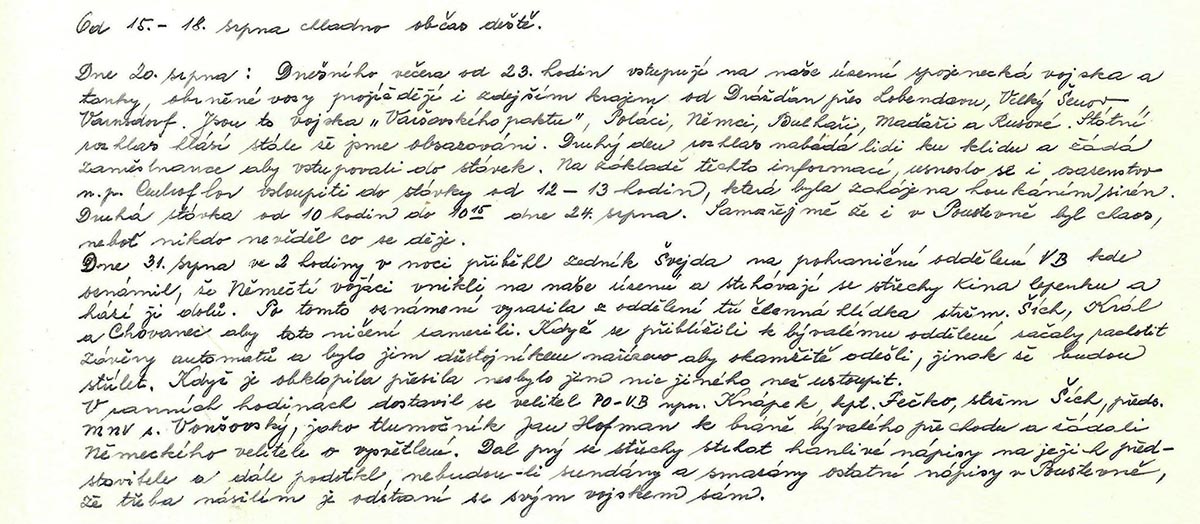 Od 15.- 18. srpna chladno občas deště.
Dne 20. srpna : Dnešního večera od 23. hodin vstupují na naše území spojenecká vojska a
tanky, obrněné vozy projíždějí i zdejším krajem od Drážďan přes Lobendavu, Velký Šenov
Varnsdorf. Jsou to vojska „Varšavského paktu", Poláci, Němci, Bulhaři, Maďaři a Rusové. Státní
rozhlas hlásí stále že jsme obsazováni. Druhý den rozhlas nabádá lidi ku klidu a žádá
zaměstnance aby vstupovali do stávek. Na základě těchto informací, usneslo se i osazenstvo
n.p. Centroflor vstoupiti do stávky od 12 - 13 hodin, která byla zahájena houkáním sirén.
Druhá stávka od 10 hodin do 10 15 dne 24. srpna. Samozřejmě že i v Poustevně byl chaos,
neboť nikdo nevěděl co se děje.
Dne 31. srpna ve 2 hodiny v noci přiběhl zedník Švejda na pohraniční oddělení VB kde
oznámil, že Němečtí vojáci vnikli na naše území a strhávají se střechy kina lepenku a
hází ji dolů. Po tomto oznámení vyrazila z oddělení tří členná hlídka stržm. Ších, Král
a Chovanec aby toto ničení zamezili. Když se přiblížili k bývalému oddělení začaly rachotit
závěry automatů a bylo jim důstojníkem nařízeno aby okamžitě odešli, jinak že budou
střílet. Když je obklopila přesila nezbylo jim nic jiného než ustoupit.
V ranních hodinách dostavil se velitel PO-VB npor. Knápek, kpt. Fečko, stržm Ších, předs.
MNV s. Vonšovský, jako tlumočník Jan Hofman k bráně bývalého přechodu a žádali
Německého velitele o vysvětlení. Dal prý se střechy strhat hanlivé nápisy na jejich před-
stavitele a dále podotkl, nebudou-li sundány a smazány ostatní nápisy v Poustevně,
že třeba násilím je odstraní se svým vojskem sám.